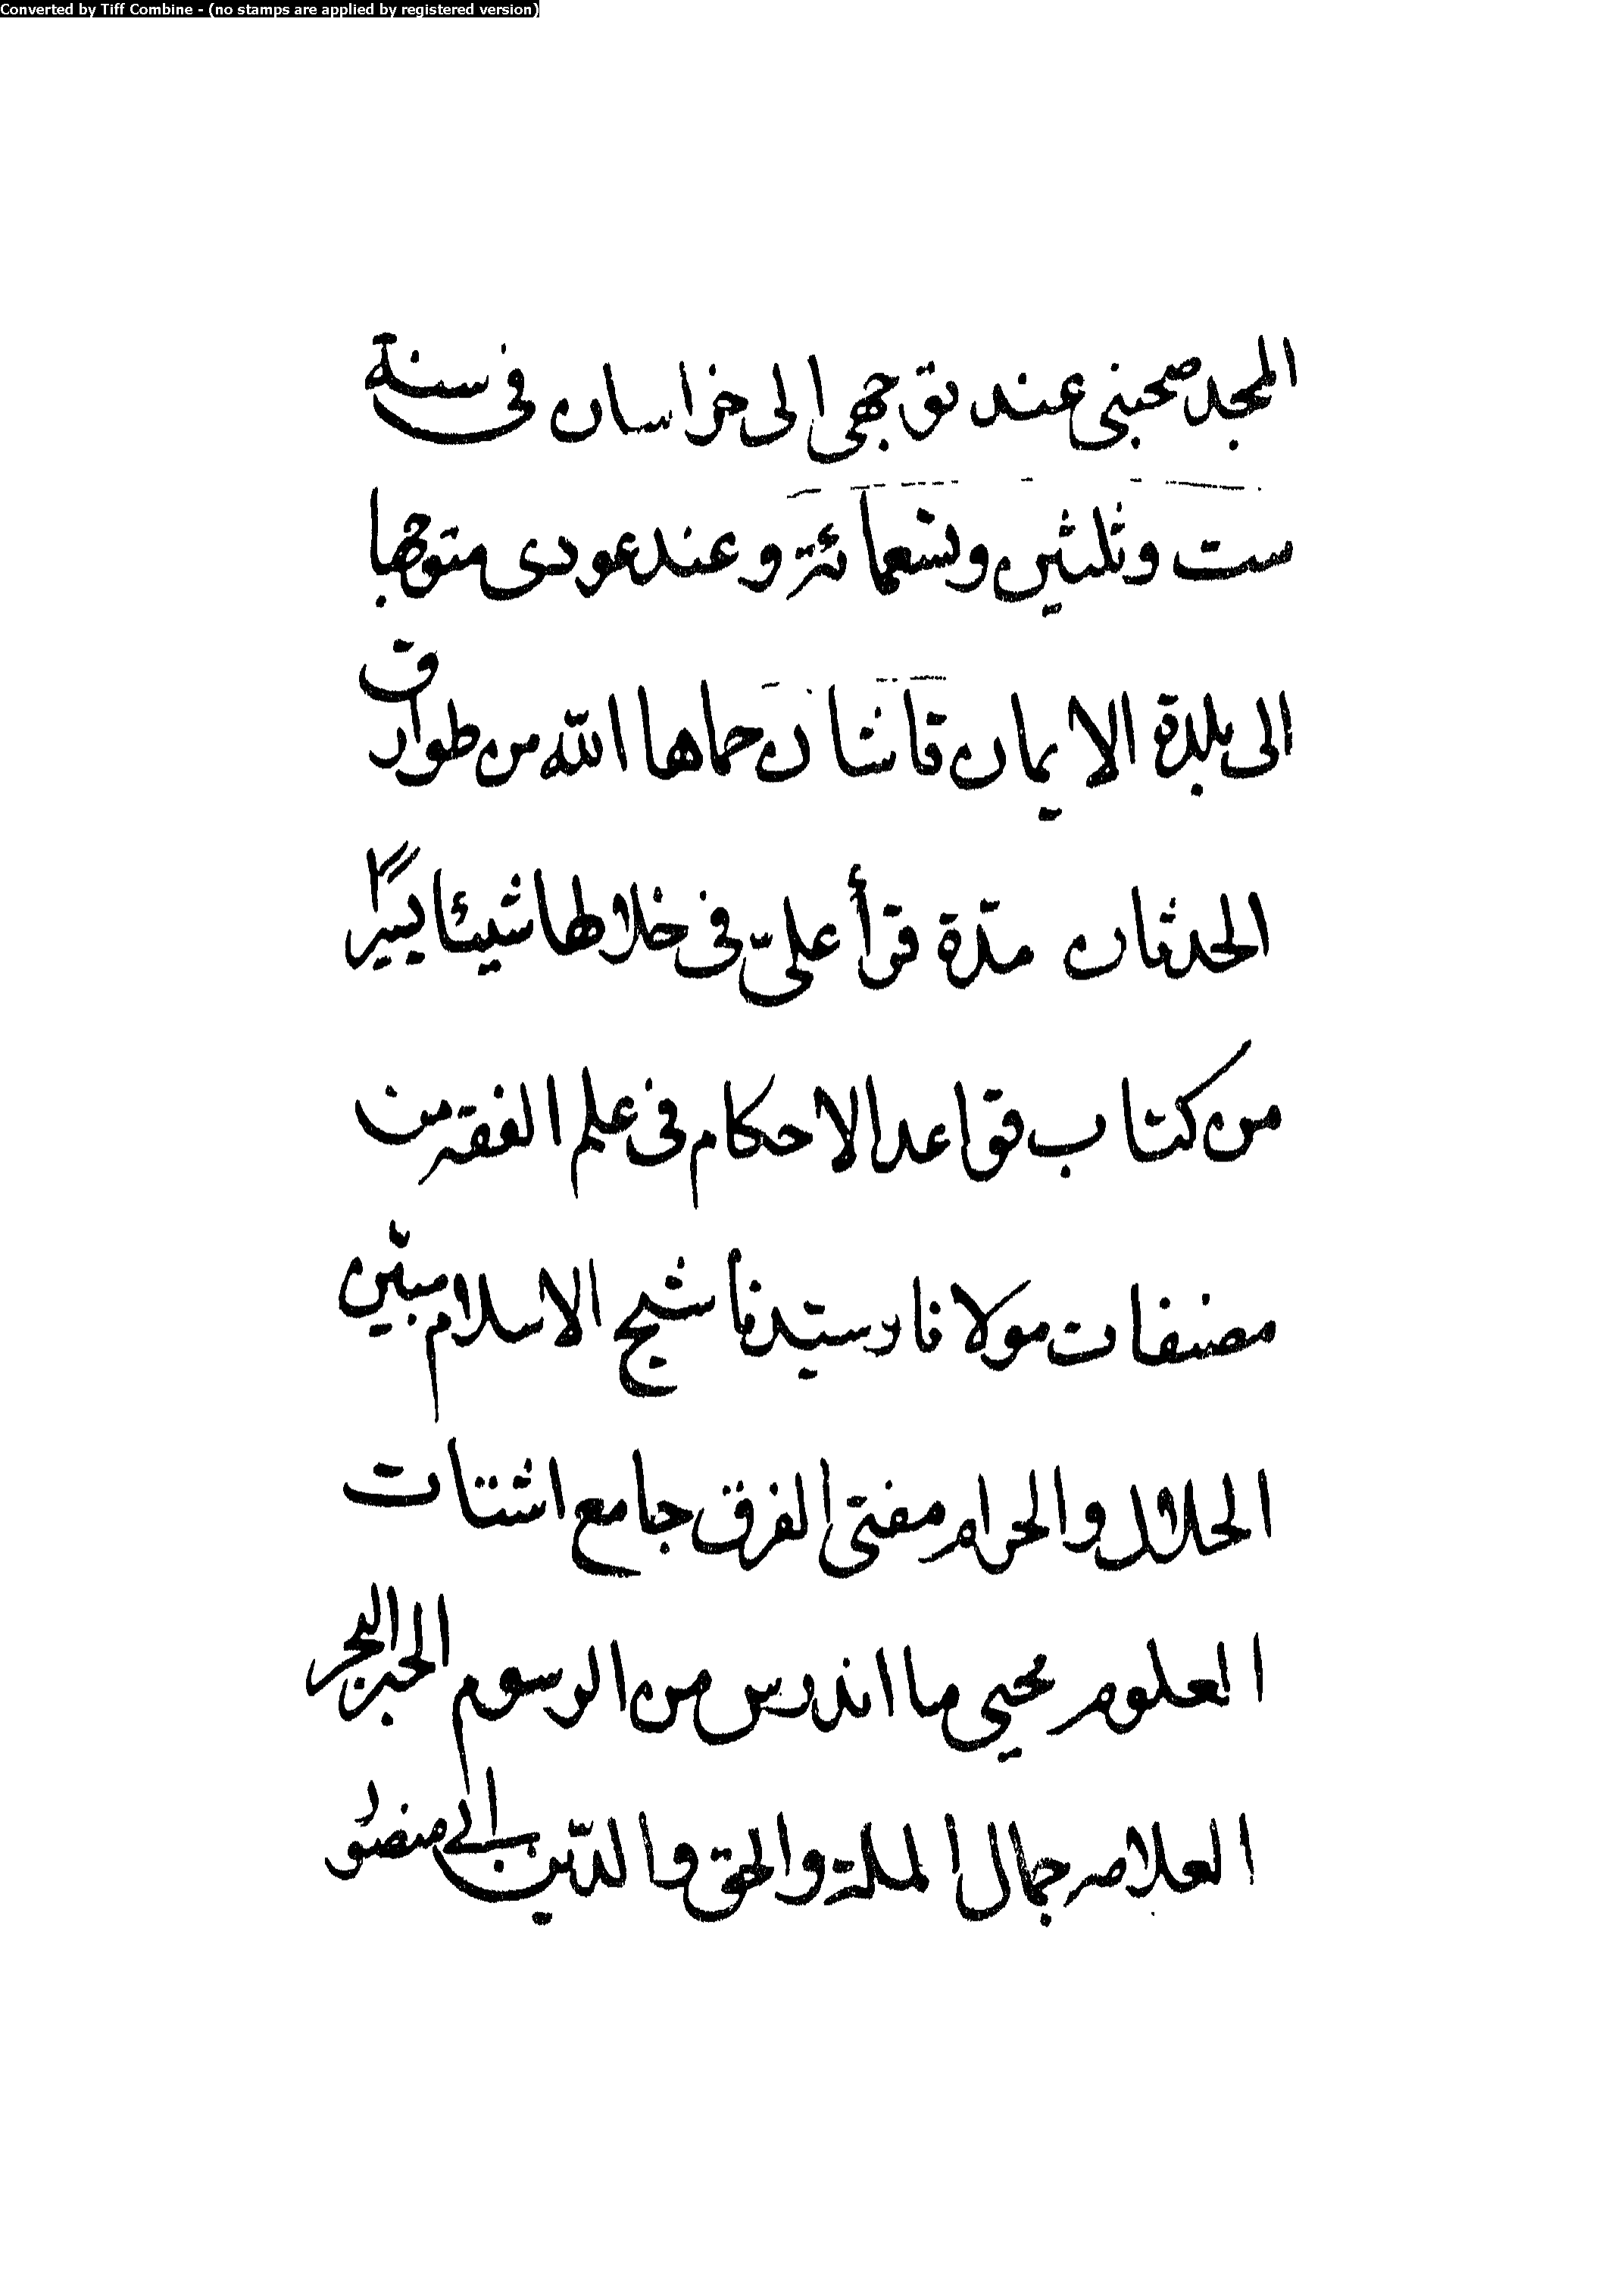 Converted by Tiff Combine - (no stamps are applied by registered version)
المجد صحبنى عند توجهى الى خراسان فى سنة
ست وثلثين وتسعمائة وعند عودى متوجها
الى بلدة الايمان قاشان حماها الله من طوارق
الحدثان مدّة قرأ علىّ فى خلالها شيئا يسيرًا
من كتاب قواعد الاحكام فى علم الفقه من
مصنفات مولانا وسيّدنا شيخ الاسلام مبيّن
الحلال والحرام مفتى الفرق جامع اشتات
العلوم محيى ما اندرس من الرسوم الحبر البحر
العلامه جمال الملة والحق والدّين ابى منصور